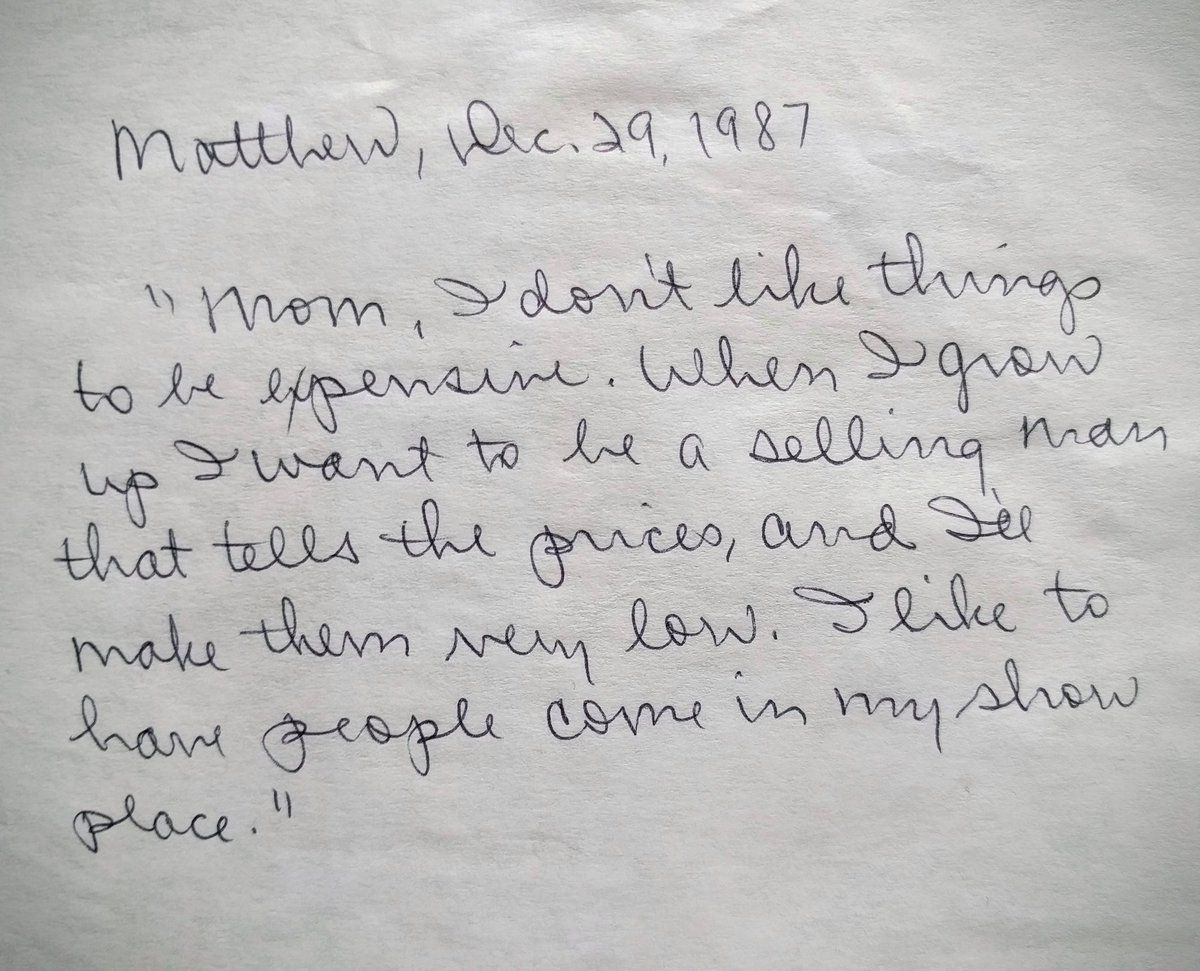 Matthew, Dec. 29, 1987
"Mom, I don't like things
to be expensive. When I grow
up I want to be a selling man
that tells the prices, and I'll
make them very low. I like to
have people come in my show
place."